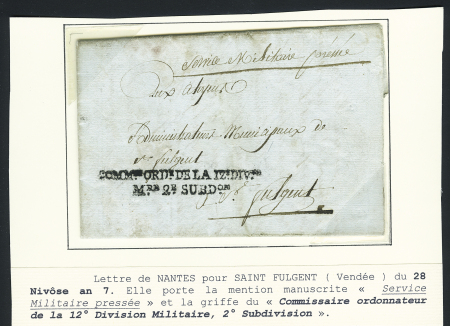 Service Militaire pressé
Aux Citoyens
Administrateurs Municipaux de
St. Fulgent
COMMre ORDr DE LA 12e DIVon
MRE 2E SUBDON
à St. Fulgent
Lettre de NANTES pour SAINT FULGENT ( Vendée ) du 28
Nivôse an 7. Elle porte la mention manuscrite « Service
Militaire pressée » et la griffe du « Commissaire ordonnateur
de la 12° Division Militaire, 2° Subdivision ».